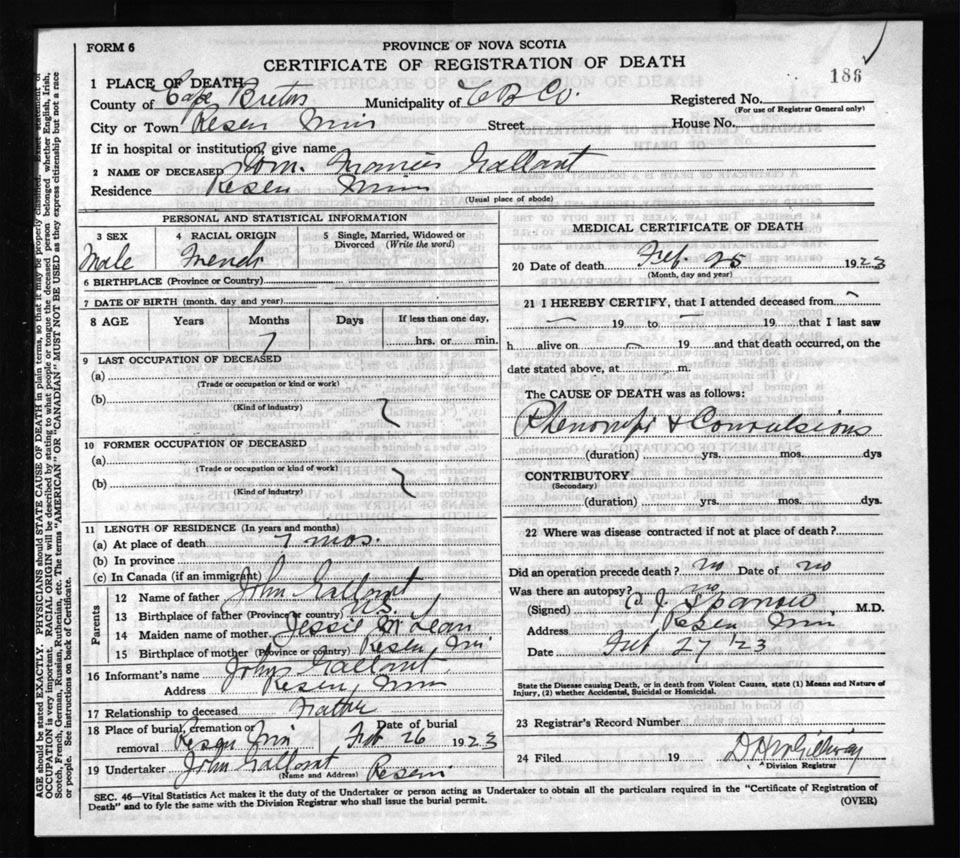 FORM 6
PROVINCE OF NOVA SCOTIA
CERTIFICATE OF REGISTRATION OF DEATH
186
1 PLACE OF DEATH
County of Cape Breton Municipality of C B Co. Registered No.
(For use of Registrar General only)
City or Town Reserve Mines Street House No.
If in hospital or institution, give name
2 NAME OF DECEASED Francis Gallant
Residence Reserve Mines
(Usual place of abode)
PERSONAL AND STATISTICAL INFORMATION
3 SEX
Male
4 RACIAL ORIGIN
French
5 Single, Married, Widowed or Divorced (Write the word)
6 BIRTHPLACE (Province or Country)
7 DATE OF BIRTH (month, day and year)
8 AGE Years Months Days If less than one day,
7 hrs. or min.
9 LAST OCCUPATION OF DECEASED
(a)
(Trade or occupation or kind or work)
(b)
(Kind of industry)
10 FORMER OCCUPATION OF DECEASED
(a)
(Trade or occupation or kind of work)
(b)
(Kind of industry)
11 LENGTH OF RESIDENCE (In years and months)
(a) At place of death 7 mos.
(b) In province
(c) In Canada (if an immigrant)
Parents
12 Name of father John Gallant
13 Birthplace of father (Province or country) N.S.
14 Maiden name of mother Jessie McLean
15 Birthplace of mother (Province or country)
16 Informant's name John Gallant
Address
17 Relationship to deceased Father
18 Place of burial, cremation or removal Date of burial Feb 26 1923
19 Undertaker John Gallant
(Name and Address)
MEDICAL CERTIFICATE OF DEATH
20 Date of death Feb 25 1923
(Month, day and year)
21 I HEREBY CERTIFY, that I attended deceased from
19 to 19 that I last saw
h alive on 19 and that death occurred, on the
date stated above, at m.
The CAUSE OF DEATH was as follows:
& Convulsions
(duration) yrs. mos. dys
CONTRIBUTORY
(Secondary)
(duration) yrs. mos. dys.
22 Where was disease contracted if not at place of death?
Did an operation precede death? no Date of no
Was there an autopsy? no
(Signed) J. Sparrow M.D.
Address
Date Feb 27 '23
State the Disease causing Death, or in death from Violent Causes, state (1) Means and Nature of
Injury, (2) whether Accidental, Suicidal or Homicidal.
23 Registrar's Record Number
24 Filed 19
Division Registrar
SEC. 46—Vital Statistics Act makes it the duty of the Undertaker or person acting as Undertaker to obtain all the particulars required in the "Certificate of Registration of
Death" and to fyle the same with the Division Registrar who shall issue the burial permit.
(OVER)
AGE should be stated EXACTLY. PHYSICIANS should STATE CAUSE OF DEATH in plain terms, so that it may be properly classified. Exact statement of
OCCUPATION is very important. RACIAL ORIGIN will be described by stating to what people or tongue the deceased person belonged, whether English, Irish,
Scotch, French, German, Russian, Ruthenian, etc. The terms "AMERICAN" OR "CANADIAN" MUST NOT BE USED as they express citizenship but not a race
or people. See instructions on back of Certificate.